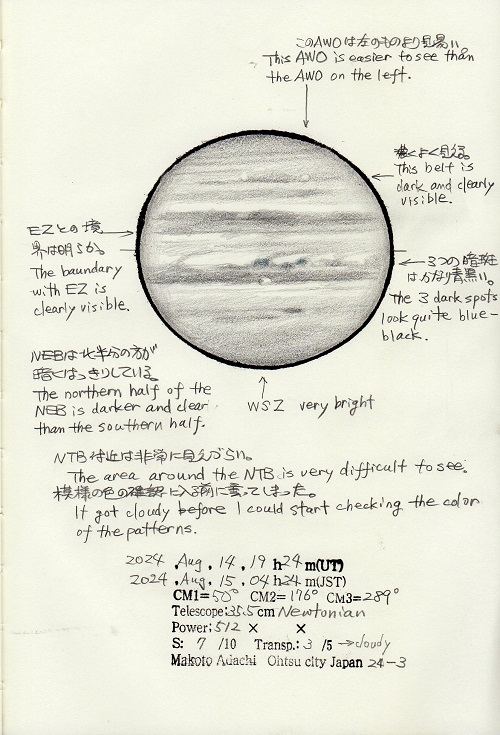 このAWOは左のものより見易い。
This AWO is easier to see than
the AWO on the left.
濃くよく見える。
This belt is
dark and clearly
visible.
EZとの境
界は明らか。
The baundary
with EZ is
clearly visible.
3つの暗斑
はかなり青黒い。
The 3 dark spots
look quite blue-
black.
NEBは北半分の方が
暗くはっきりしている。
The northern half of the
NEB is darker and clear
than the southern half.
WSZ very bright
NTB付近は非常に見えづらい。
The area around the NTB is very difficult to see.
模様の色の確認に入る前に曇ってしまった。
It got cloudy before I could start checking the color
of the patterns.
2024 . Aug . 14 . 19 h 24 m(UT)
2024 . Aug . 15 . 04 h 24 m(JST)
CM1= 50° CM2= 176° CM3= 289°
Telescope: 35.5cm Newtonian
Power: 512 × ×
S: 7 /10 Transp.: 3 /5 → cloudy
Makoto Adachi Ohtsu city Japan 24-3